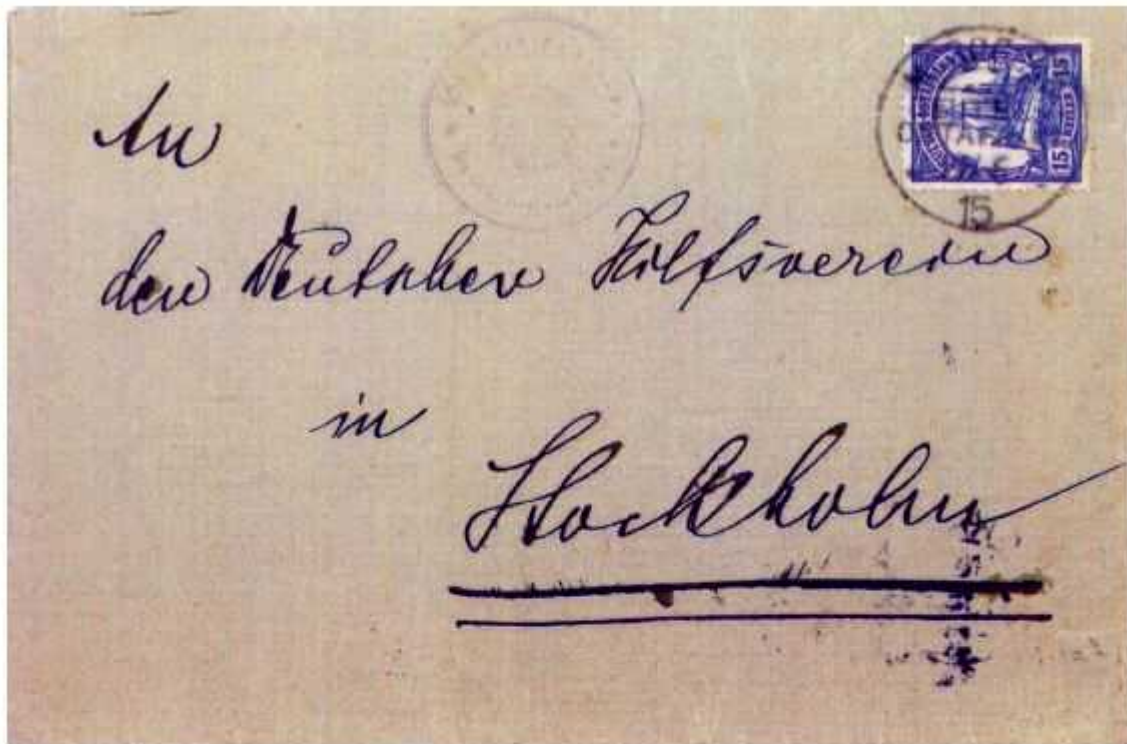 An
den Deutschen Hilfsverein
in
Stockholm
15
15
15